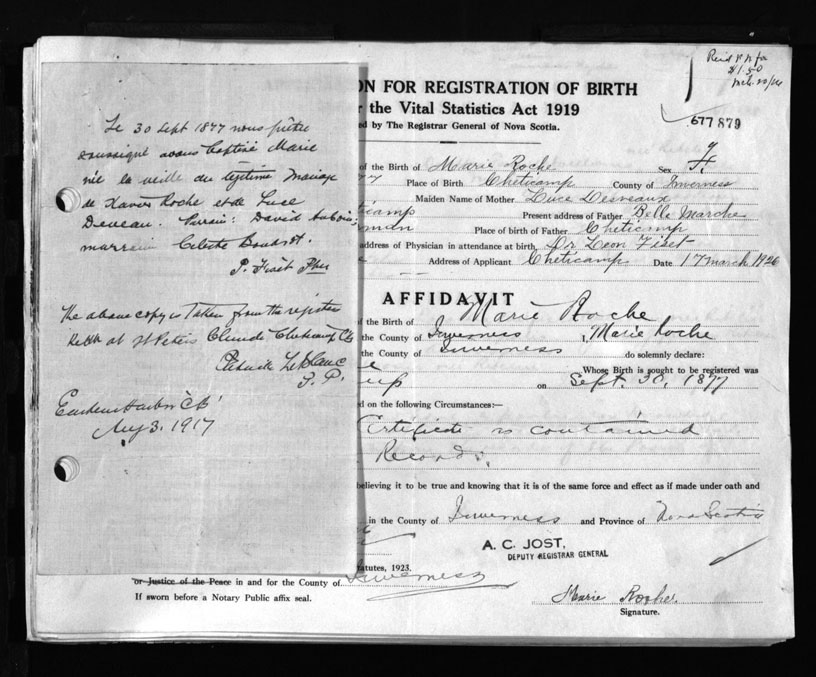 Le 30 Sept 1877 nous prêtre
soussigné avons baptisé Marie
née la veille du légitime mariage
de Xavier Roche et de Luce
Deveau. Parrain: David
marraine Celeste
P. Fiset Ptre
The above copy is taken from the register
kept at St Peters Church Cheticamp CB
LeBlanc
Eastern Harbor CB
Aug 3. 1917
ON FOR REGISTRATION OF BIRTH
r the Vital Statistics Act 1919
ed by The Registrar General of Nova Scotia.
677879
of the Birth of Marie Roche Sex F.
77 Place of Birth Cheticamp County of Inverness
Maiden Name of Mother Luce Desveaux
ticamp Present address of Father Belle Marche
Place of birth of Father Cheticamp
address of Physician in attendance at birth, Dr Leon Fiset
Address of Applicant Cheticamp Date 17 March 1926
AFFIDAVIT
of the Birth of Marie Roche
the County of Inverness I, Marie Roche
the County of Inverness do solemnly declare:
Whose Birth is sought to be registered was
on Sept. 30, 1877
d on the following Circumstances:—
Certificate is contained
Records.
believing it to be true and knowing that it is of the same force and effect as if made under oath and
in the County of Inverness and Province of Nova Scotia
A. C. JOST,
DEPUTY REGISTRAR GENERAL
tatutes, 1923.
or Justice of the Peace in and for the County of Inverness
If sworn before a Notary Public affix seal.
Marie Roche
Signature.